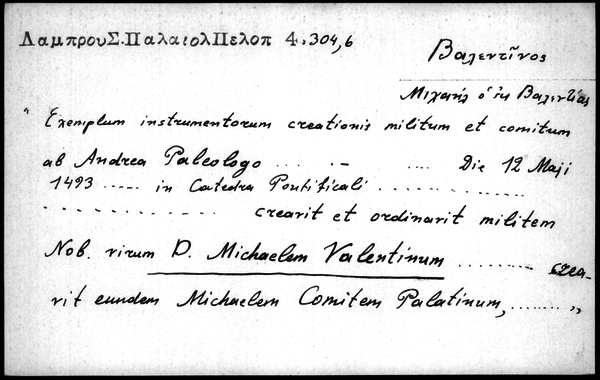 ΛαμπρουΣ.ΠαλαιολΠελοπ 4.304,6
Βαλεντῖνος
Μιχαὴλ ὁ ἐκ Βαλεντίας
" Exemplum instrumentorum creationis militum et comitum
ab Andrea Paleologo ... – ... Die 12 Maji
1493 ..... in Catedra Pontificali ..........
.......... crearit et ordinarit militem
Nob. virum D. Michaelem Valentinum ........ crea-
rit eundem Michaelem Comitem Palatinum, ....... "